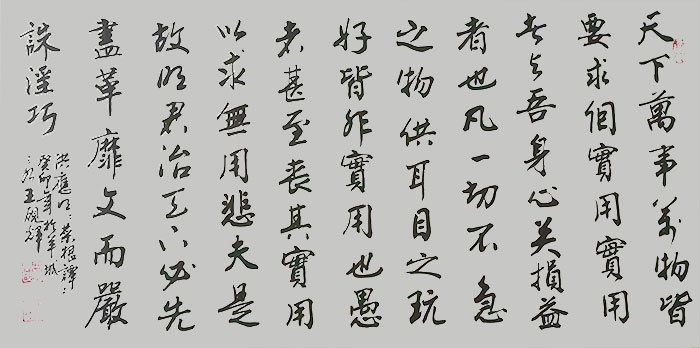 天下萬事萬物皆
要求個實用實用
者與吾身心关損益
者也凡一切不急
之物供耳目之玩
好皆非實用也愚
者甚至喪其實用
以求無用悲夫是
故明君治天下必先
盡革靡文而嚴
誅淫巧
洪應明：菜根譚：
癸卯年於羊城
王硯輝